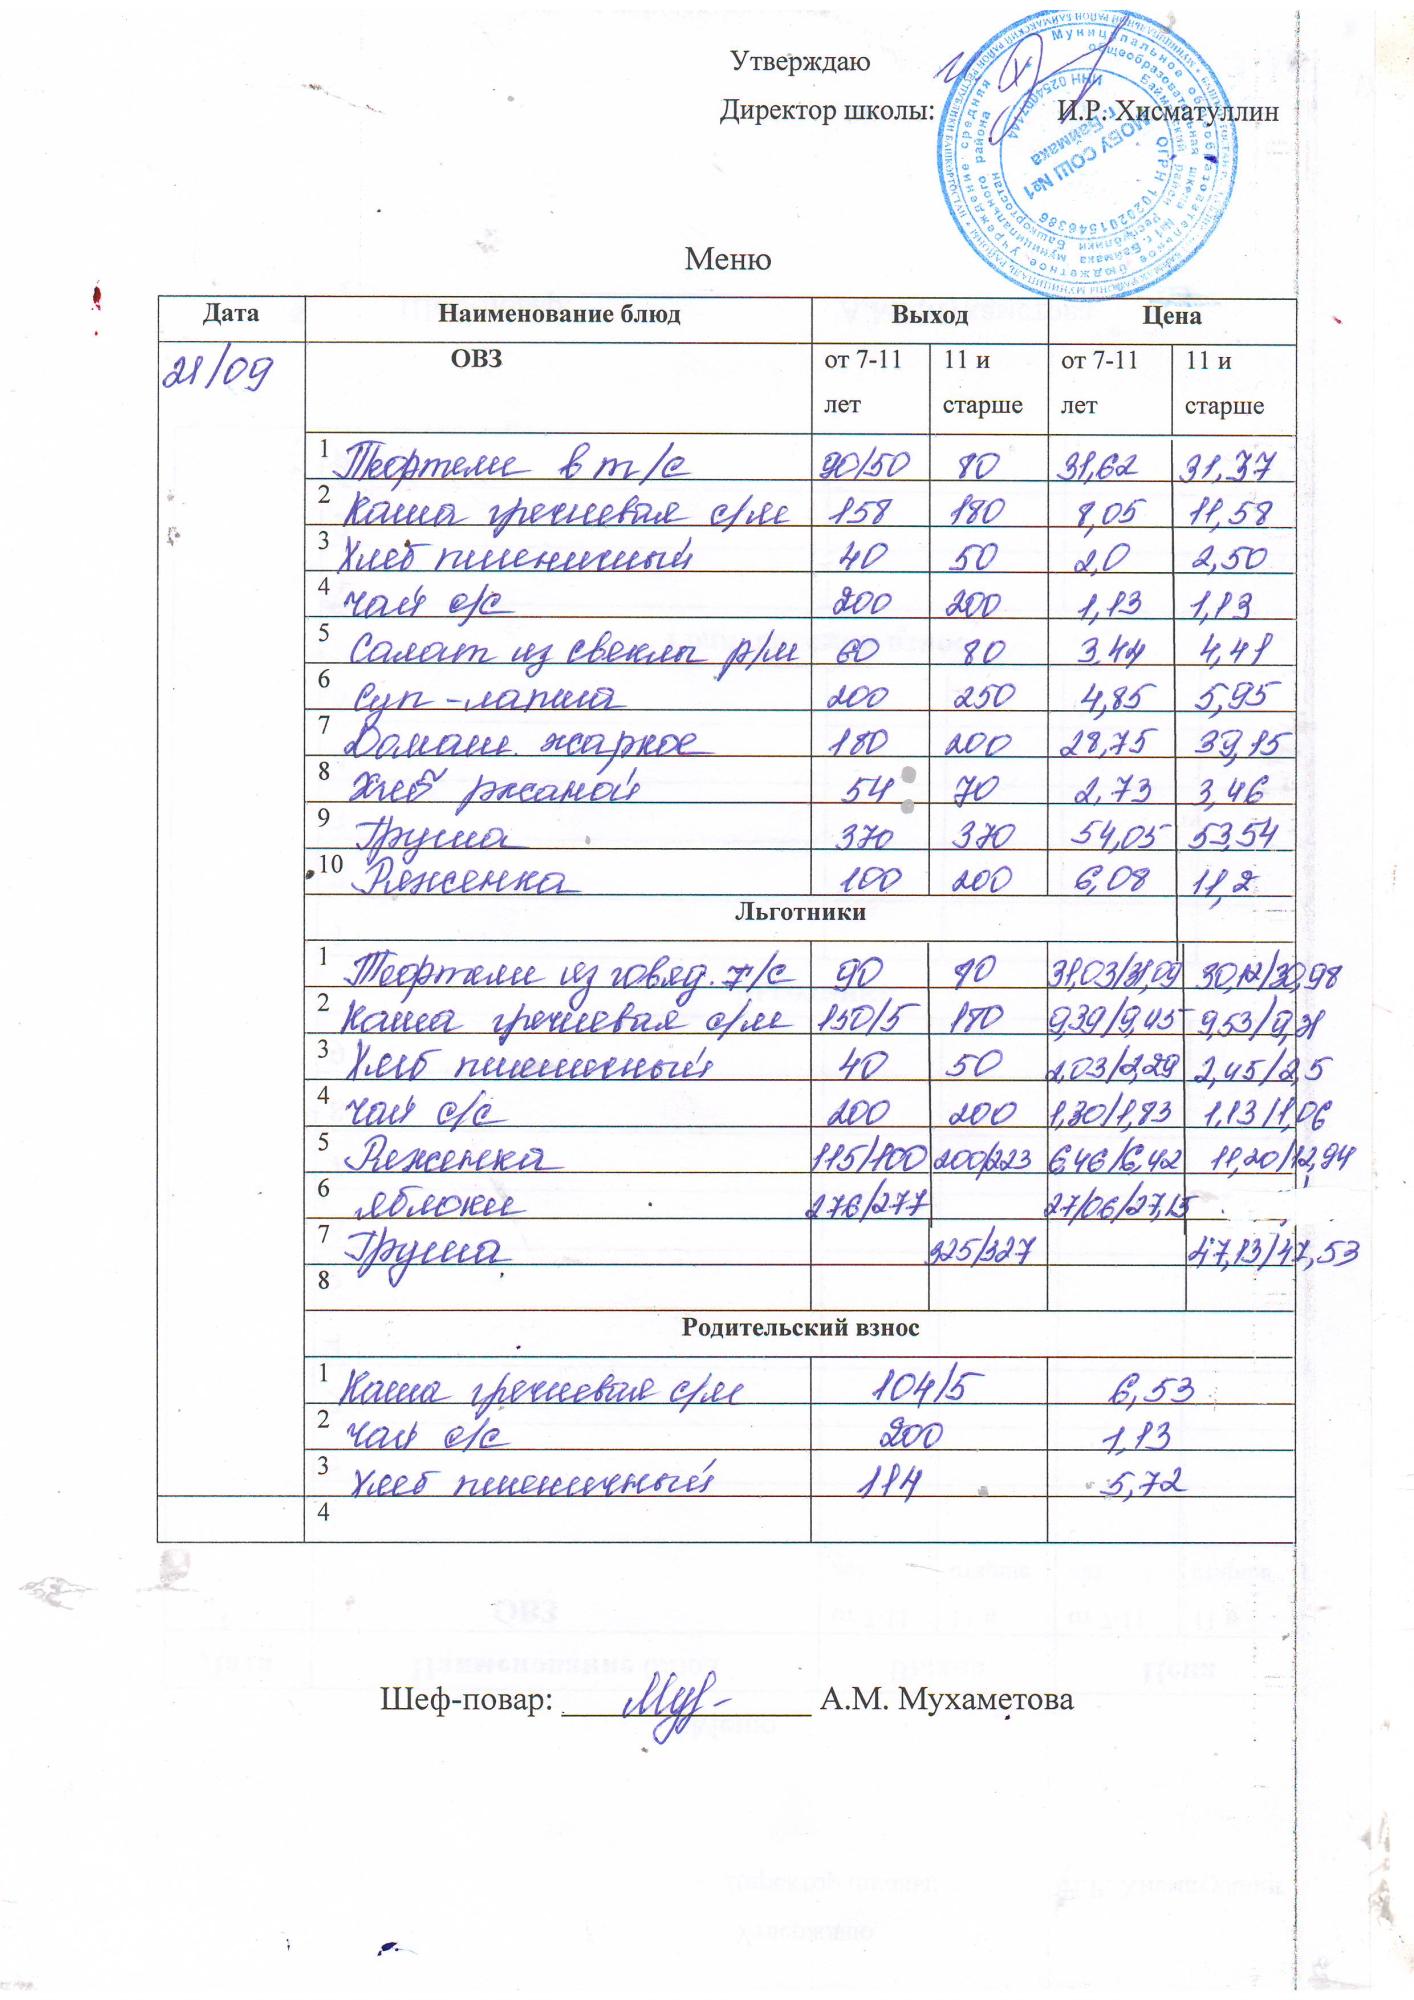 Утверждаю
Директор школы: И.Р. Хисматуллин
МОБУ СОШ №1
г. Баймака
ОГРН 1020201546386
ИНН 0254007444
Меню
Дата Наименование блюд Выход Цена
21/09 ОВЗ от 7-11 лет 11 и старше от 7-11 лет 11 и старше
1 Тефтели в т/с 90/50 80 31,62 31,37
2 Каша гречневая с/м 158 180 8,05 11,58
3 Хлеб пшеничный 40 50 2,0 2,50
4 Чай с/с 200 200 1,13 1,13
5 Салат из свеклы р/м 60 80 3,44 4,41
6 Суп-лапша 200 250 4,85 5,95
7 Домаш. жаркое 180 200 28,75 39,15
8 Хлеб ржаной 54 70 2,73 3,46
9 Груша 370 370 54,05 53,54
10 Ряженка 100 200 6,08 11,2
Льготники
1 Тефтели из говяд. т/с 90 90 31,03/31,09 30,12/30,98
2 Каша гречневая с/м 150/5 180 9,39/9,45 9,53/9,31
3 Хлеб пшеничный 40 50 2,03/2,29 2,45/2,5
4 Чай с/с 200 200 1,30/1,83 1,13/1,06
5 Ряженка 115/100 200/223 6,46/6,42 11,20/12,94
6 Яблоки 276/277 27/06/27,15
7 Груша 325/327 47,13/47,53
8
Родительский взнос
1 Каша гречневая с/м 104/5 6,53
2 Чай с/с 200 1,13
3 Хлеб пшеничный 114 5,72
4
Шеф-повар: А.М. Мухаметова